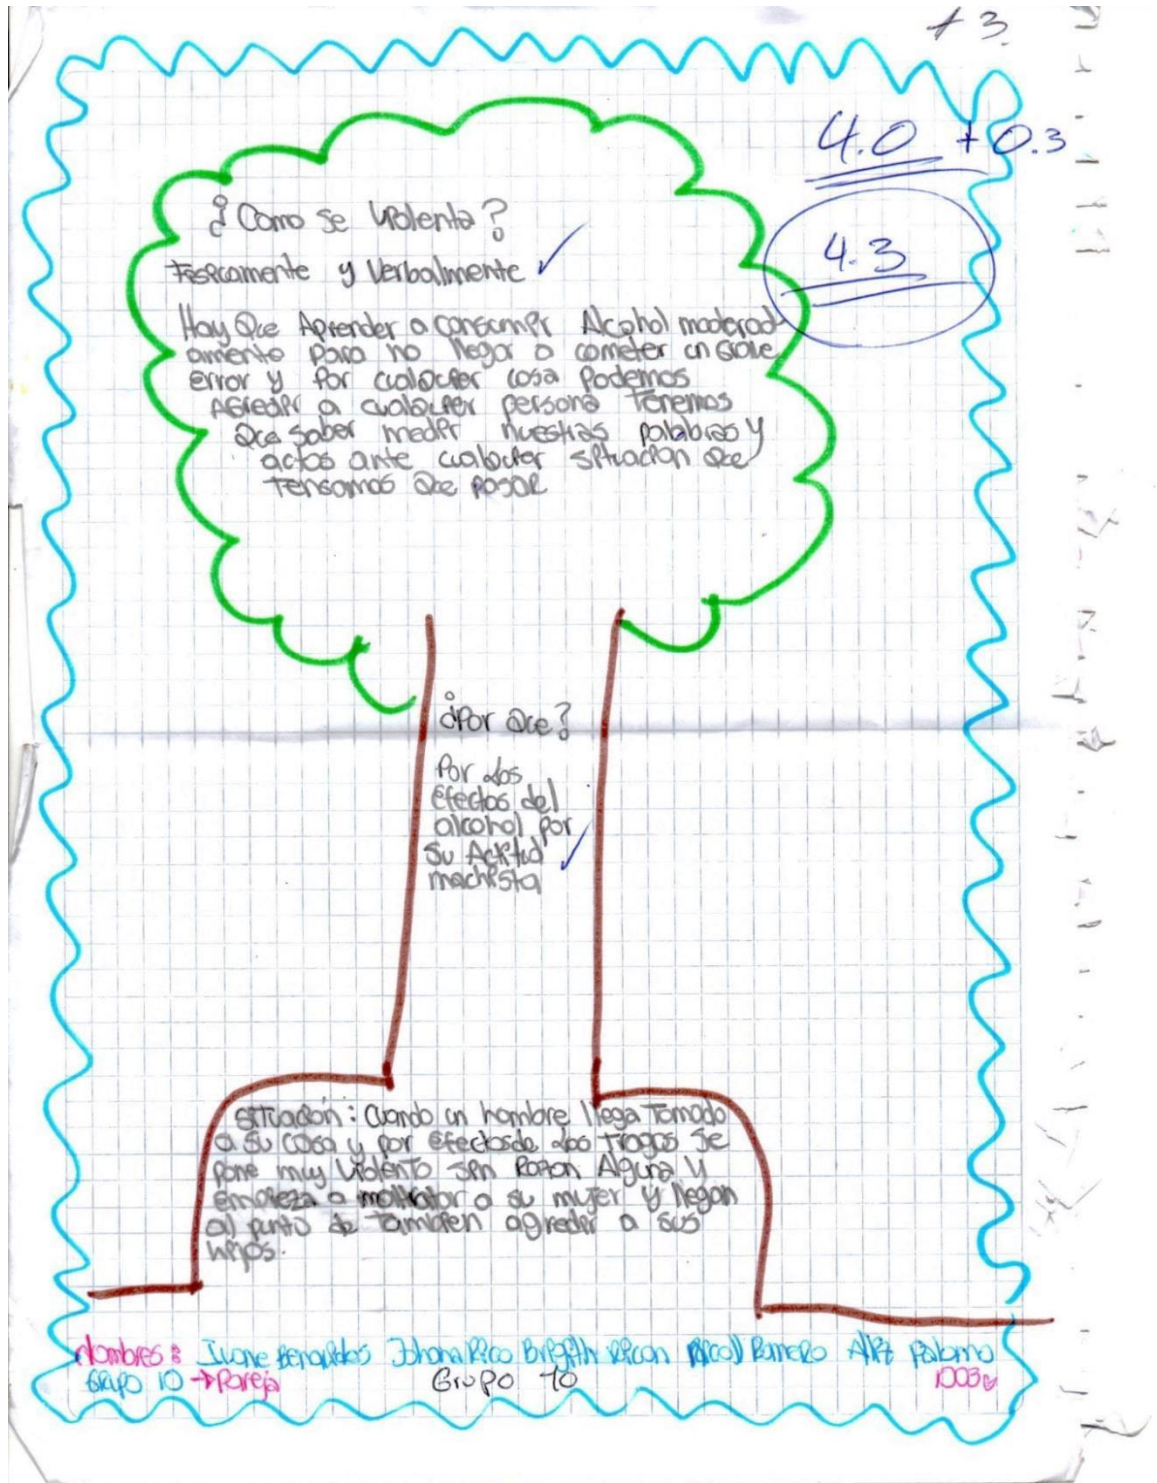 + 3.
4.0 + 0.3
4.3
¿Como se violenta?
Fisicamente y Verbalmente ✓
Hay Que Aprender a consumir Alcohol moderad-
amente para no llegar a cometer un Grave
error y por cualquier cosa podemos
Agredir a cualquier persona Tenemos
Que saber medir nuestras palabras y
actos ante cualquier situacion Que
Tengamos Que pasar
¿Por Que?
Por los
efectos del
alcohol por
su Actitud ✓
machista
Situación: Cuando un hombre llega Tomado
a su casa y por efectos de los Tragos se
pone muy violento sin Razon Alguna y
empieza a maltratar a su mujer y llegan
al punto de Tambien agredir a sus
hijos.
Nombres: Ivone Benavides Johana Rico Brigith Rincon Nicoll Romero Aliz Palomo
Grupo 10 → Pareja Grupo 10 1003